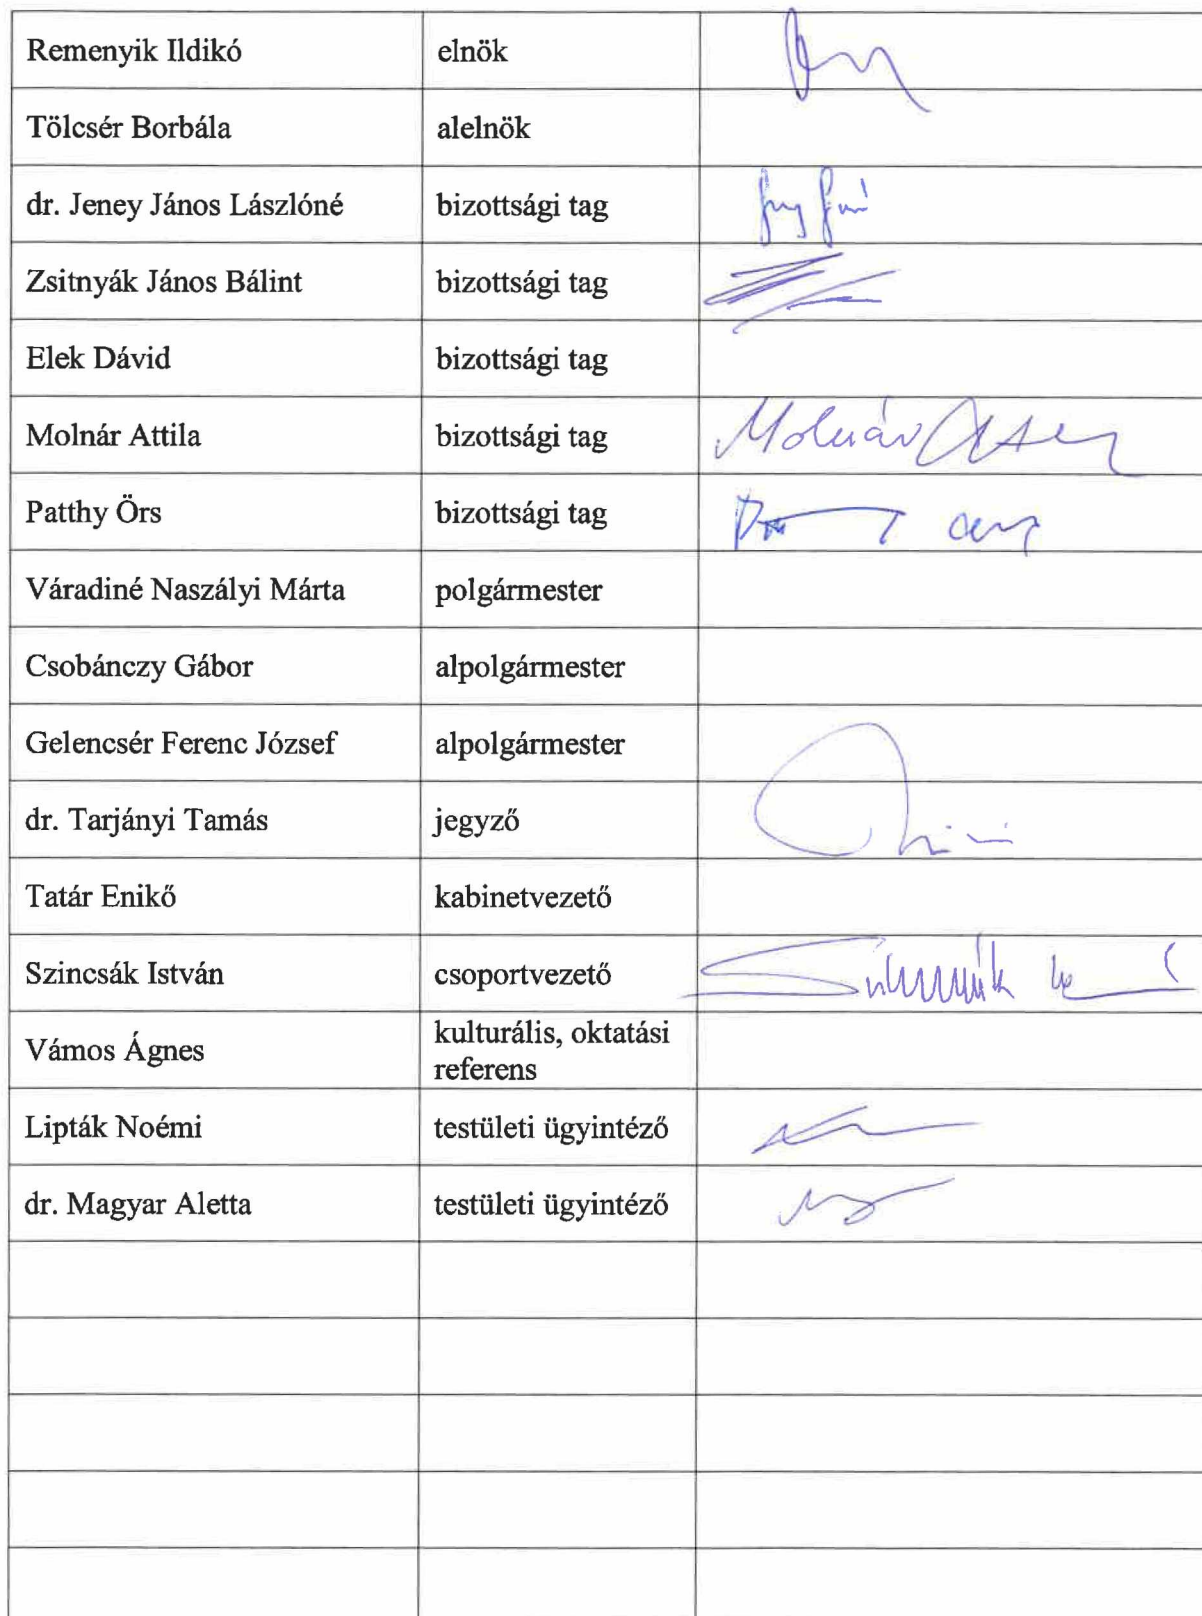 Remenyik Ildikó elnök
Tölcsér Borbála alelnök
dr. Jeney János Lászlóné bizottsági tag
Zsitnyák János Bálint bizottsági tag
Elek Dávid bizottsági tag
Molnár Attila bizottsági tag Molnár
Patthy Örs bizottsági tag
Váradiné Naszályi Márta polgármester
Csobánczy Gábor alpolgármester
Gelencsér Ferenc József alpolgármester
dr. Tarjányi Tamás jegyző
Tatár Enikő kabinetvezető
Szincsák István csoportvezető
Vámos Ágnes kulturális, oktatási
referens
Lipták Noémi testületi ügyintéző
dr. Magyar Aletta testületi ügyintéző